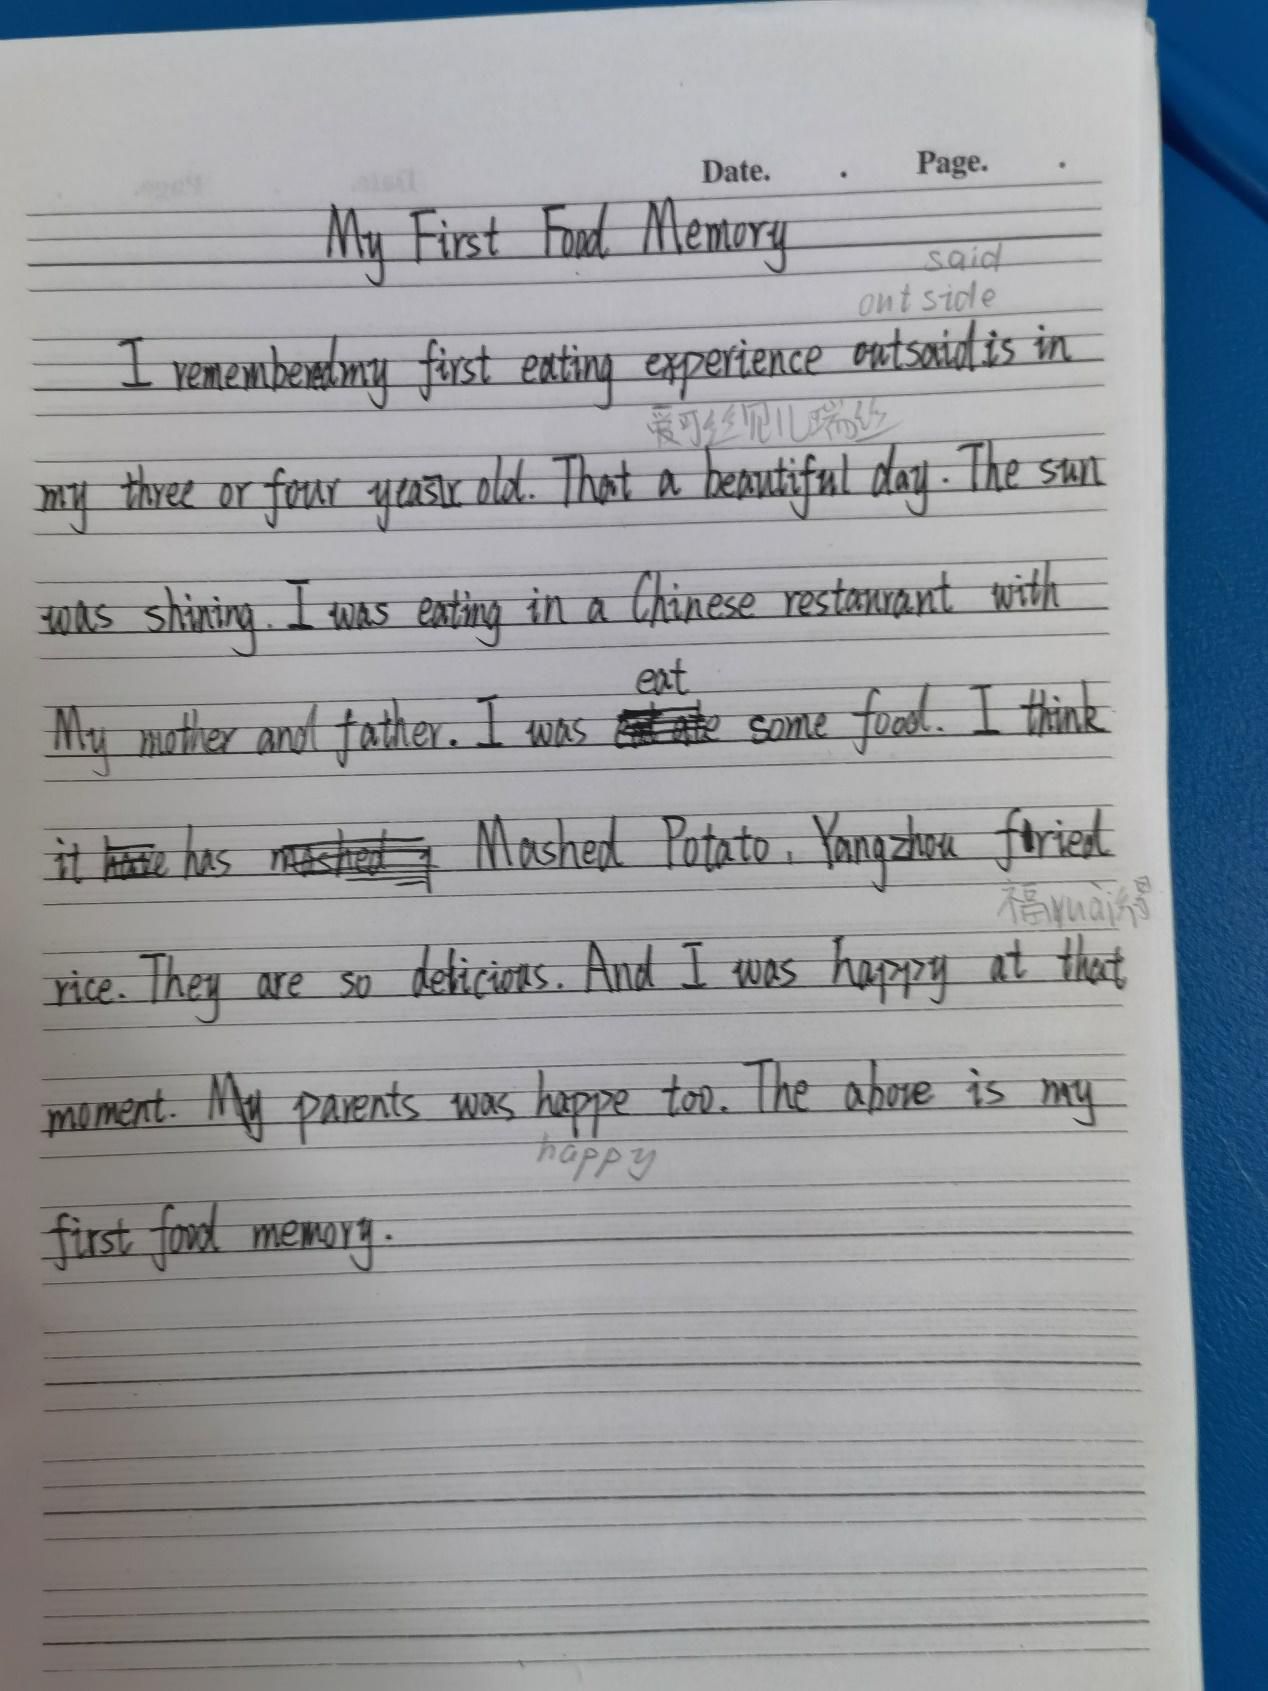 Date. . Page. .
My First Food Memory
said
outside
I remembered my first eating experience outsaid is in
爱可丝见儿瑞丝
my three or four yeasr old. That a beautiful day. The sun
was shining. I was eating in a Chinese restaurant with
eat
My mother and father. I was some food. I think
it has Mashed Potato, Yangzhou fried
rice. They are so delicious. And I was happy at that
moment. My parents was happe too. The above is my
happy
first food memory.